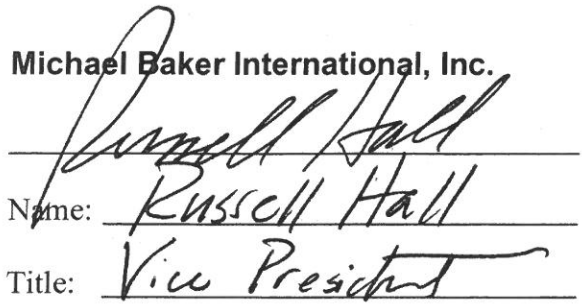 Michael Baker International, Inc.
Russell Hall
Name: Russell Hall
Title: Vice President